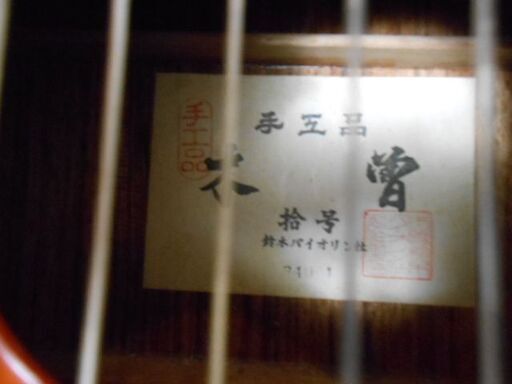 手工品
手工品
木曽
拾号
鈴木バイオリン社